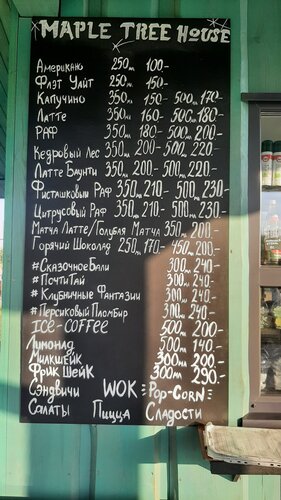 MAPLE TREE HOUSE
Американо 250мл 100-
Флэт Уайт 250м 150-
Капучино 350м 150- 500м 170-
Латте 350м 160- 500м 180-
РАФ 350м 180- 500м 200-
Кедровый Лес 350мл 200- 500м 220-
Латте Баунти 350м 200.- 500м 220-
Фисташковый Раф 350м 210- 500м 230-
Цитрусовый Раф 350м 210- 500м 230-
Матча Латте/Голубая Матча 350м 200-
Горячий Шоколад 250м 170- 450м 200-
#СказочноеБали 300м 240.-
#ПочтиТай 300м 240-
#Клубничные Фантазии 300м 240-
#Персиковый Пломбир 300м 240-
Ice-Coffee 500м 200-
Лимонад 500м 140-
Милкшейк 300мл 200-
Фрик Шейк 300м 290.-
Сэндвичи WOK Pop-Corn
Салаты Пицца Сладости